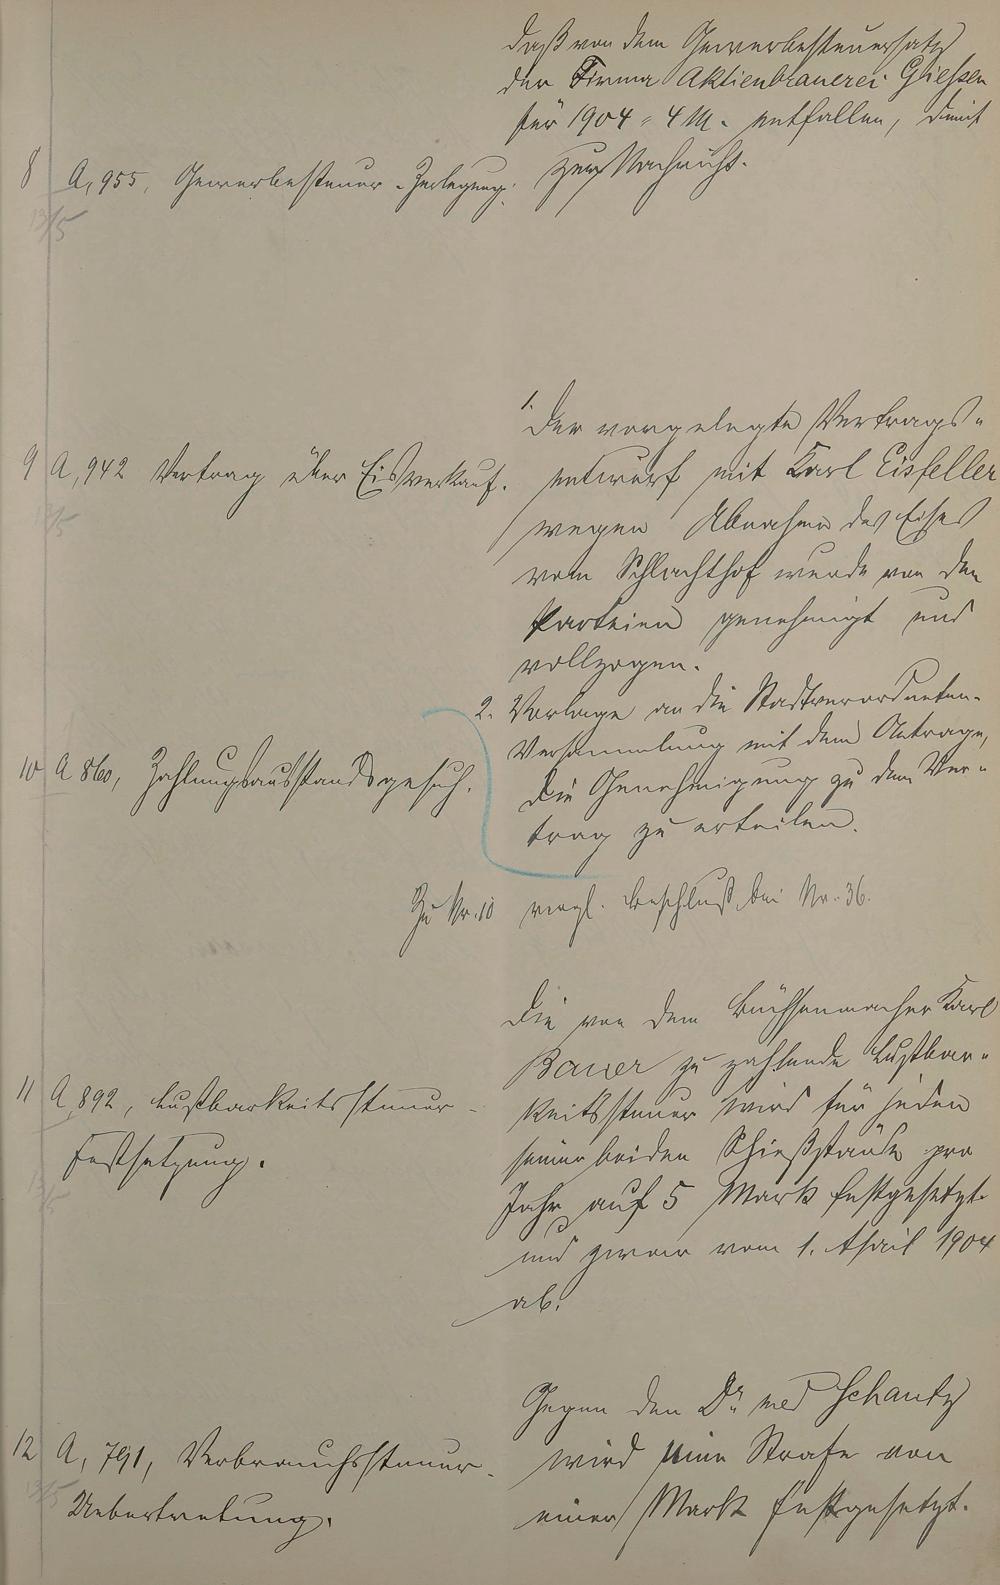 daß von dem Gewerbesteuersatz
der Firma Aktienbrauerei Giessen
für 1904 = 4 M. entfallen, dient
zur Nachricht.
8 A, 955, Gewerbesteuer-Zerlegung.
13/5
1. Der vorgelegte Vertrags-
9 A, 942 Vertrag über Eisverkauf.
entwurf mit Karl Eisfeller
13/5
wegen Abnahme des Eises
vom Schlachthof wurde von den
Parteien genehmigt und
vollzogen.
2. Vorlage an die Stadtverordneten-
Versammlung mit dem Antrage,
die Genehmigung zu dem Ver-
trag zu erteilen.
10 A 860, Zahlungsausstandsgesuch.
Zu Nr. 10 vergl. Beschluß bei Nr. 36.
Die von dem Büchsenmacher Karl
Bauer zu zahlende Lustbar-
keitssteuer wird für jeden
seiner beiden Schießstände pro
Jahr auf 5 Mark festgesetzt
und zwar vom 1. April 1904
ab.
11 A, 892, Lustbarkeitssteuer-
Festsetzung.
13/5
Gegen den Dr. med Schantz
wird eine Strafe von
einer Mark festgesetzt.
12 A, 791, Verbrauchssteuer-
13/5
Uebertretung.